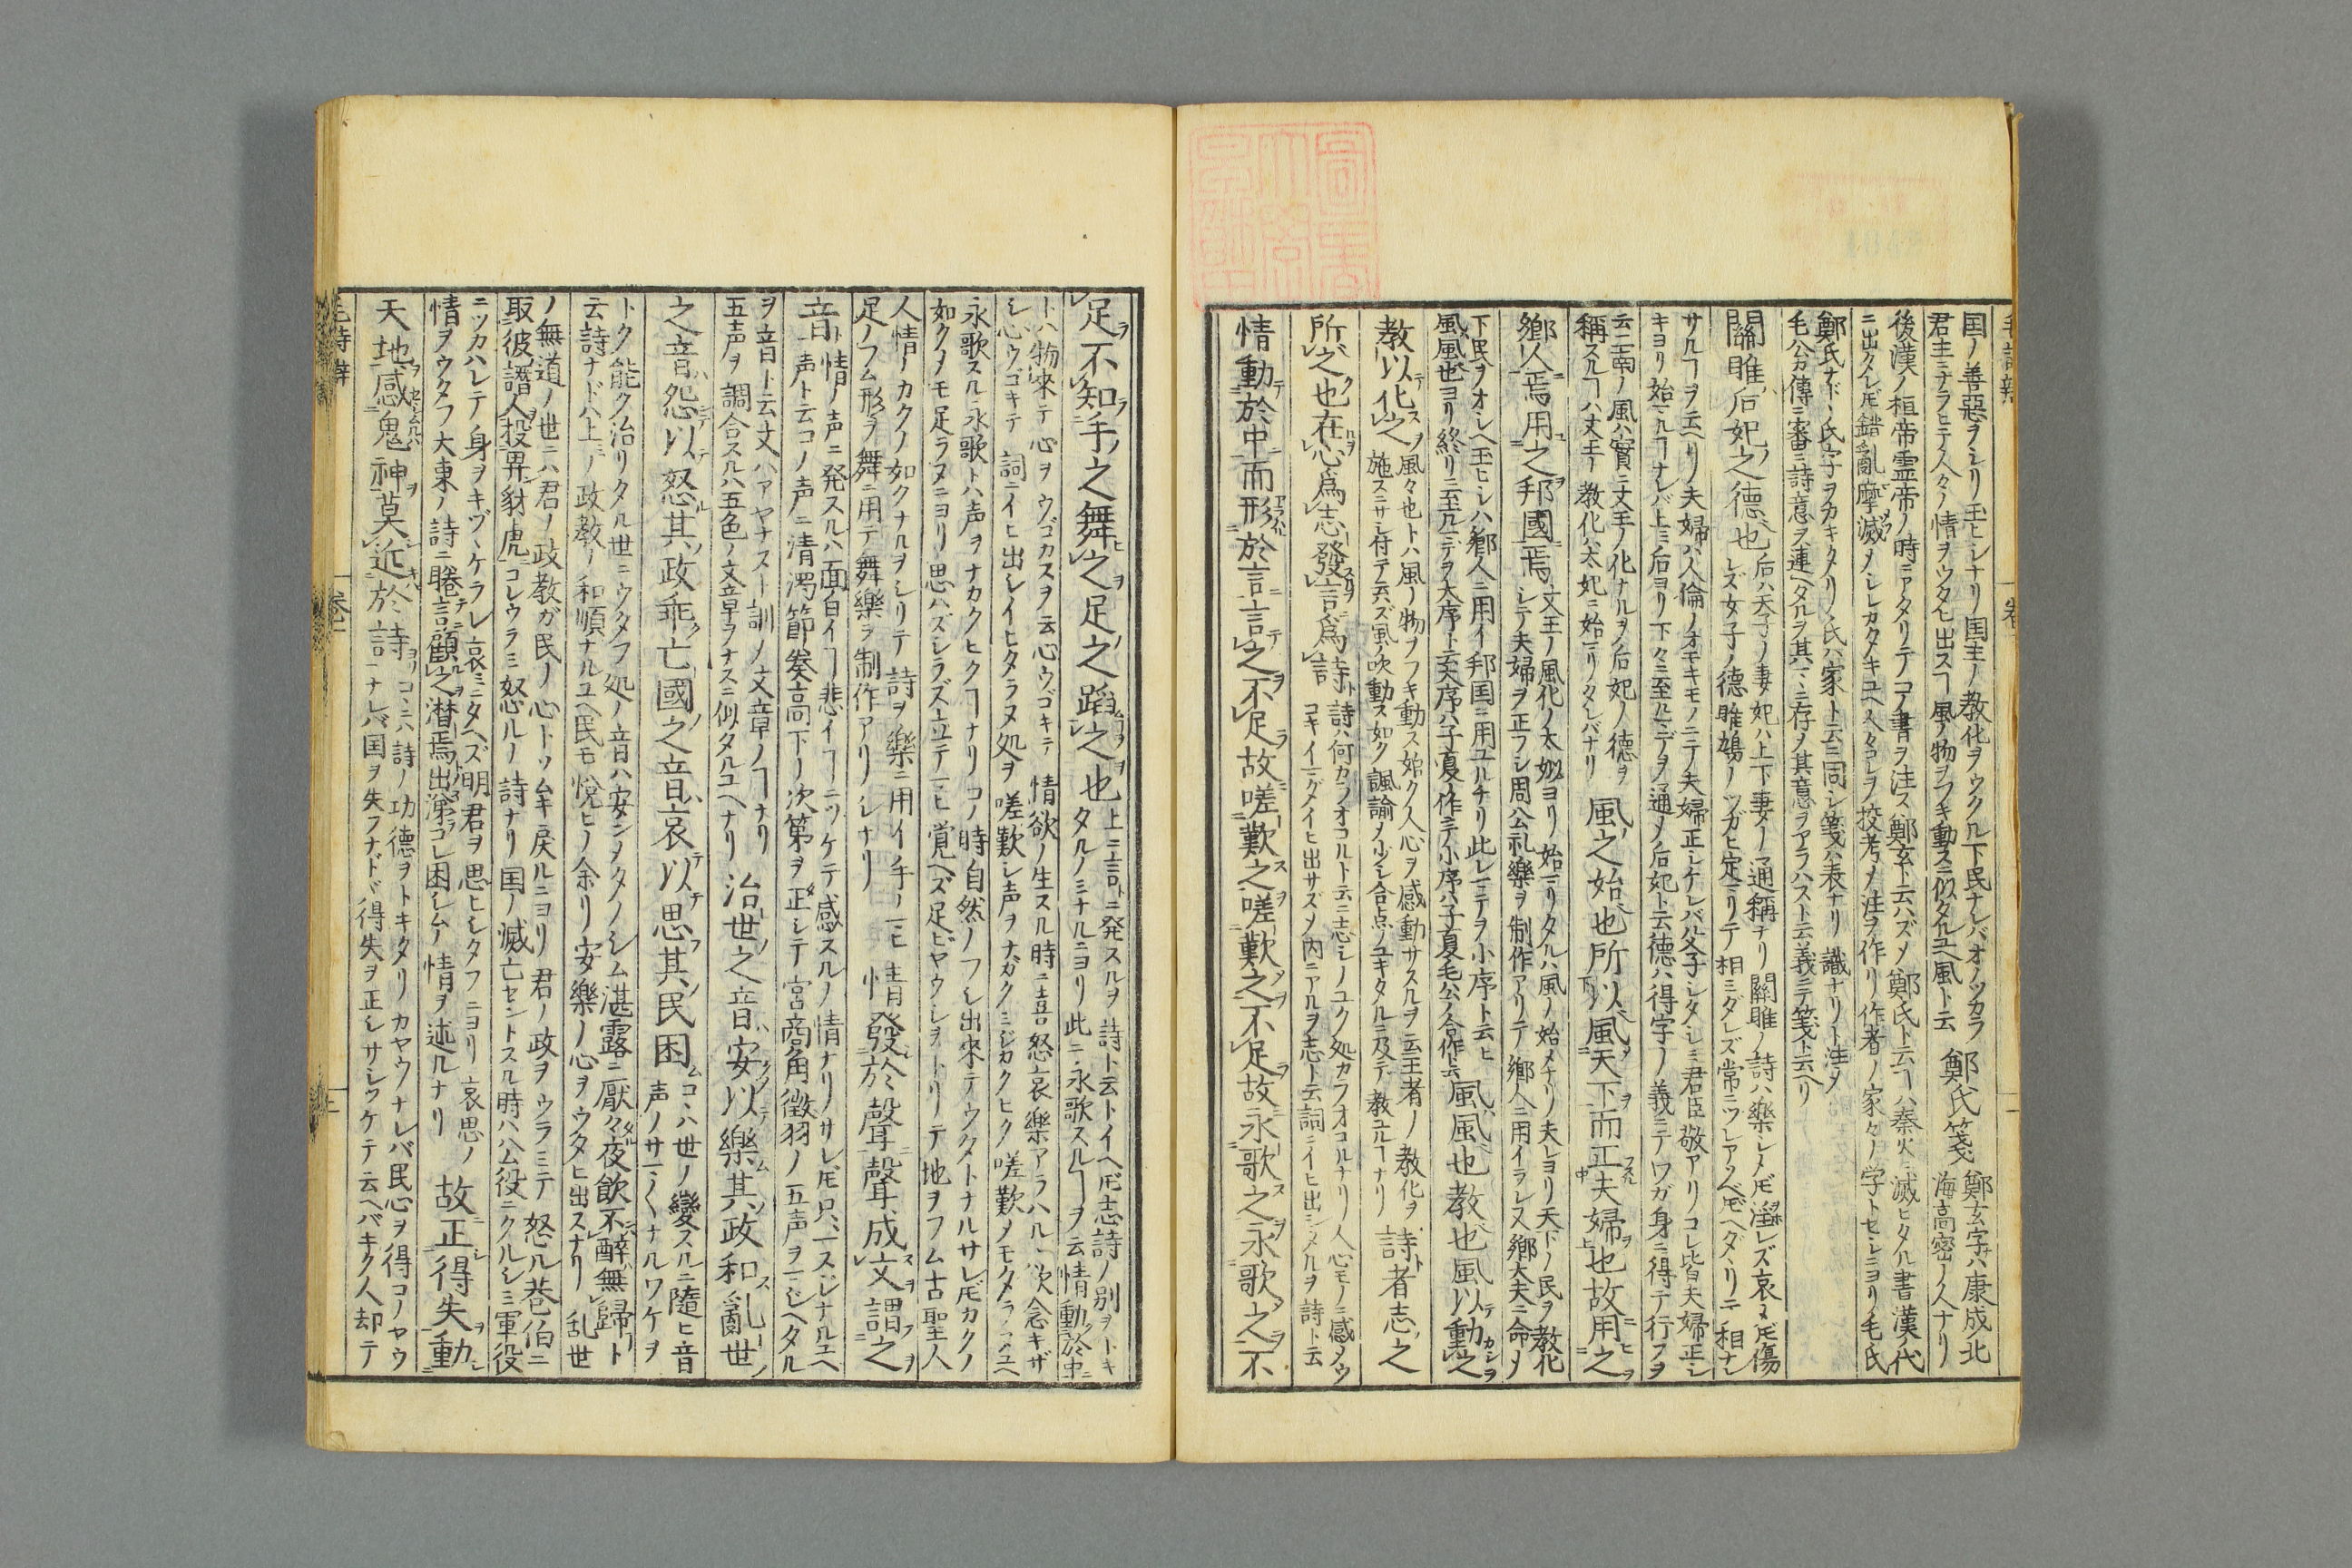 国ノ善惡ヲシリ玉ヒシナリ国主ノ教化ヲウクル下民ナレバオノツカラ
君主ニナラヒテ人々ノ情ヲウタヒ出スヿ風ノ物ヲフキ動スニ似タルユヘ風ト云
鄭氏箋
鄭玄字ハ康成北
海高密ノ人ナリ
後漢ノ桓帝霊帝ノ時ニアタリテコノ書ヲ注ス鄭玄ト云ハズメ鄭氏ト云ヿハ秦火ニ滅ヒタル書漢ノ代
ニ出タレ𪜈錯亂摩滅メシレカタキユヘ人々コレヲ校考メ注ヲ作リ作者ノ家々ノ学トセシニヨリ毛氏
鄭氏ナド氏字ヲカキタリ氏ハ家ト云ニ同シ箋ハ表ナリ識ナリト注メ
毛公ガ傳ニ審ニ詩意ヲ運ヘタルヲ其ハニ存メ其意ヲアラハスト云義ニテ箋ト云ヘリ
關雎后妃之德也
后ハ天子ノ妻妃ハ上下妻ノ通稱ナリ關雎ノ詩ハ樂シメ𪜈淫レズ哀メ𪜈傷
レズ女子ノ德雎鳩ノツガヒ定リテ相ミダレズ常ニツレアヘ𪜈ヘダヽリテ相ナレ
サルヿヲ云ヘリ夫婦ハ人倫ノオモキモノニテ夫婦正シケレバ父子シタシミ君臣敬アリコレ皆夫婦正シ
キヨリ始マルヿナレバ上ミ后ヨリ下々ニ至ルマデヲ通メ后妃ト云德ハ得字ノ義ニテワガ身ニ得テ行フヲ
云二南ノ風ハ實ニ文王ノ化ナルヲ后妃ノ德ヲ
稱スルヿハ文王ノ教化ハ太妃ニ始マリタレバナリ
風之始也所以風天下而正夫婦也故用之
鄉人焉用之邦國焉
文王ノ風化ノ太姒ヨリ始マリタルハ風ノ始メナリ夫レヨリ天下ノ民ヲ教化
シテ夫婦ヲ正フシ周公礼樂ヲ制作アリテ鄉人ニ用イラレ又鄉大夫ニ命メ
下民ヲオシヘ玉ヒシハ鄉人ニ用イ邦国ニ用ユルナリ此レマテヲ小序ト云ヒ
風風也ヨリ終リニ至ルマデヲ大序ト云大序ハ子夏ノ作ニテ小序ハ子夏毛公ノ合作ト云
風風也教也風以動之
教以化之
風々也トハ風ノ物ヲフキ動ス如ク人心ヲ感動サスルヲ云王者ノ教化ヲ
施スニサシ付テ云ズ風ノ吹動ス如ク諷諭メ少シ合点ノユキタルニ及テ教ユルヿナリ
詩者志之
所之也在心爲志發言爲詩
詩ハ何カラオコルト云ニ志シノユク処カラオコルナリ人心モノニ感メウ
コキイマダイヒ出サズメ内ニアルヲ志ト云詞ニイヒ出シタルヲ詩ト云
情動於中而形於言言之不足故嗟歎之嗟歎之不足故永歌之永歌之不
足不知手之舞之足之蹈之也
上ニ言トニ発スルヲ詩ト云トイヘ𪜈志詩ノ別ヲトキ
タルノミナルニヨリ此ニ永歌スルヿヲ云情動於中
トハ物來テ心ヲウゴカスヲ云心ウゴキテ情欲ノ生スル時ニ喜怒哀樂アラハルヽ次念キザ
シ心ウゴキテ詞ニイヒ出シイヒタラヌ処ヲ嗟歎シ声ヲナガクミジカクヒク嗟歎メモタラヌユヘ
永歌スル永歌トハ声ヲナカクヒクヿナリコノ時自然ノフシ出來テウタトナルサレ𪜈カクノ
如クメモ足ラヌニヨリ思ハズシラズ立テマヒ覚ヘズ足ビヤウシヲトリテ地ヲフム古聖人
人情ノカクノ如クナルヲシリテ詩ヲ樂ニ用イ手ノマヒ
足ノフム形ヲ舞ニ用テ舞樂ヲ制作アリシナリ
情發於聲聲成文謂之
音
情ノ声ニ発スルハ面白イヿ悲イヿニツケテ感スルノ情ナリサレ𪜈只一スジナルユヘ
声ト云コノ声ニ清濁節奏高下ノ次第ヲ正シテ宮商角徵羽ノ五声ヲマジヘタル
ヲ音ト云文ハアヤナスト訓ノ文章ノヿナリ
五声ヲ調合スルハ五色ノ文章ヲナスニ似タルユヘナリ
治世之音安以樂其政和亂世
之音怨以怒其政乖亡國之音哀以思其民困
コヽハ世ノ變スルニ隨ヒ音
声ノサマ〱ナルワケヲ
トク能ク治リタル世ニウタフ処ノ音ハ安ンメタノシム湛露ニ厭々夜飲不醉無歸ト
云詩ナドハ上ミノ政教ノ和順ナルユヘ民モ悅ヒノ余リ安樂ノ心ヲウタヒ出スナリ乱世
ノ無道ノ世ニハ君ノ政教ガ民ノ心トソムキ戾ルニヨリ君ノ政ヲウラミテ怒ル巷伯ニ
取彼譖人投畀豺虎コレウラミ怒ルノ詩ナリ国ノ滅亡セントスル時ハ公役ニクルシミ軍役
ニツカハレテ身ヲキヅヽケラレ哀ミニタヘズ明君ヲ思ヒシタフニヨリ哀思ノ
情ヲウタフ大東ノ詩ニ睠言顧之潸焉出涕コレ困シムノ情ヲ述ルナリ
故正得失動
天地感鬼神莫近於詩
コヽニハ詩ノ功德ヲトキタリカヤウナレバ民心ヲ得コノヤウ
ナレバ国ヲ失フナド得失ヲ正シサシツケテ云ヘバキク人却テ
毛詩辨
卷一